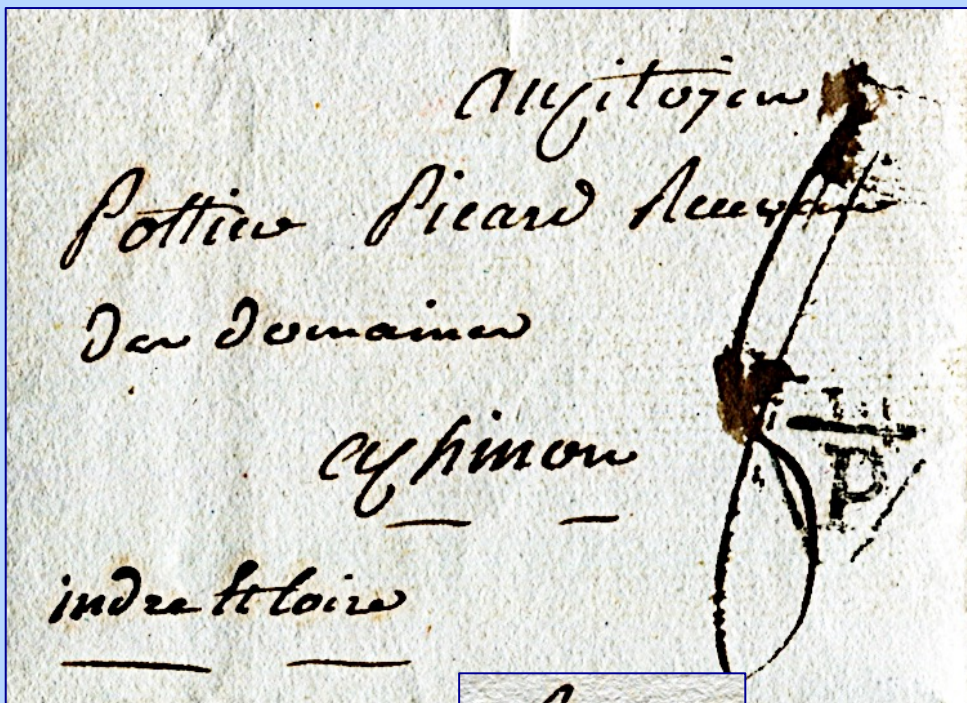 Au Citoyen
Pottier Picard Receveur
Des Domaines
a Chinon
indre Et Loire
P